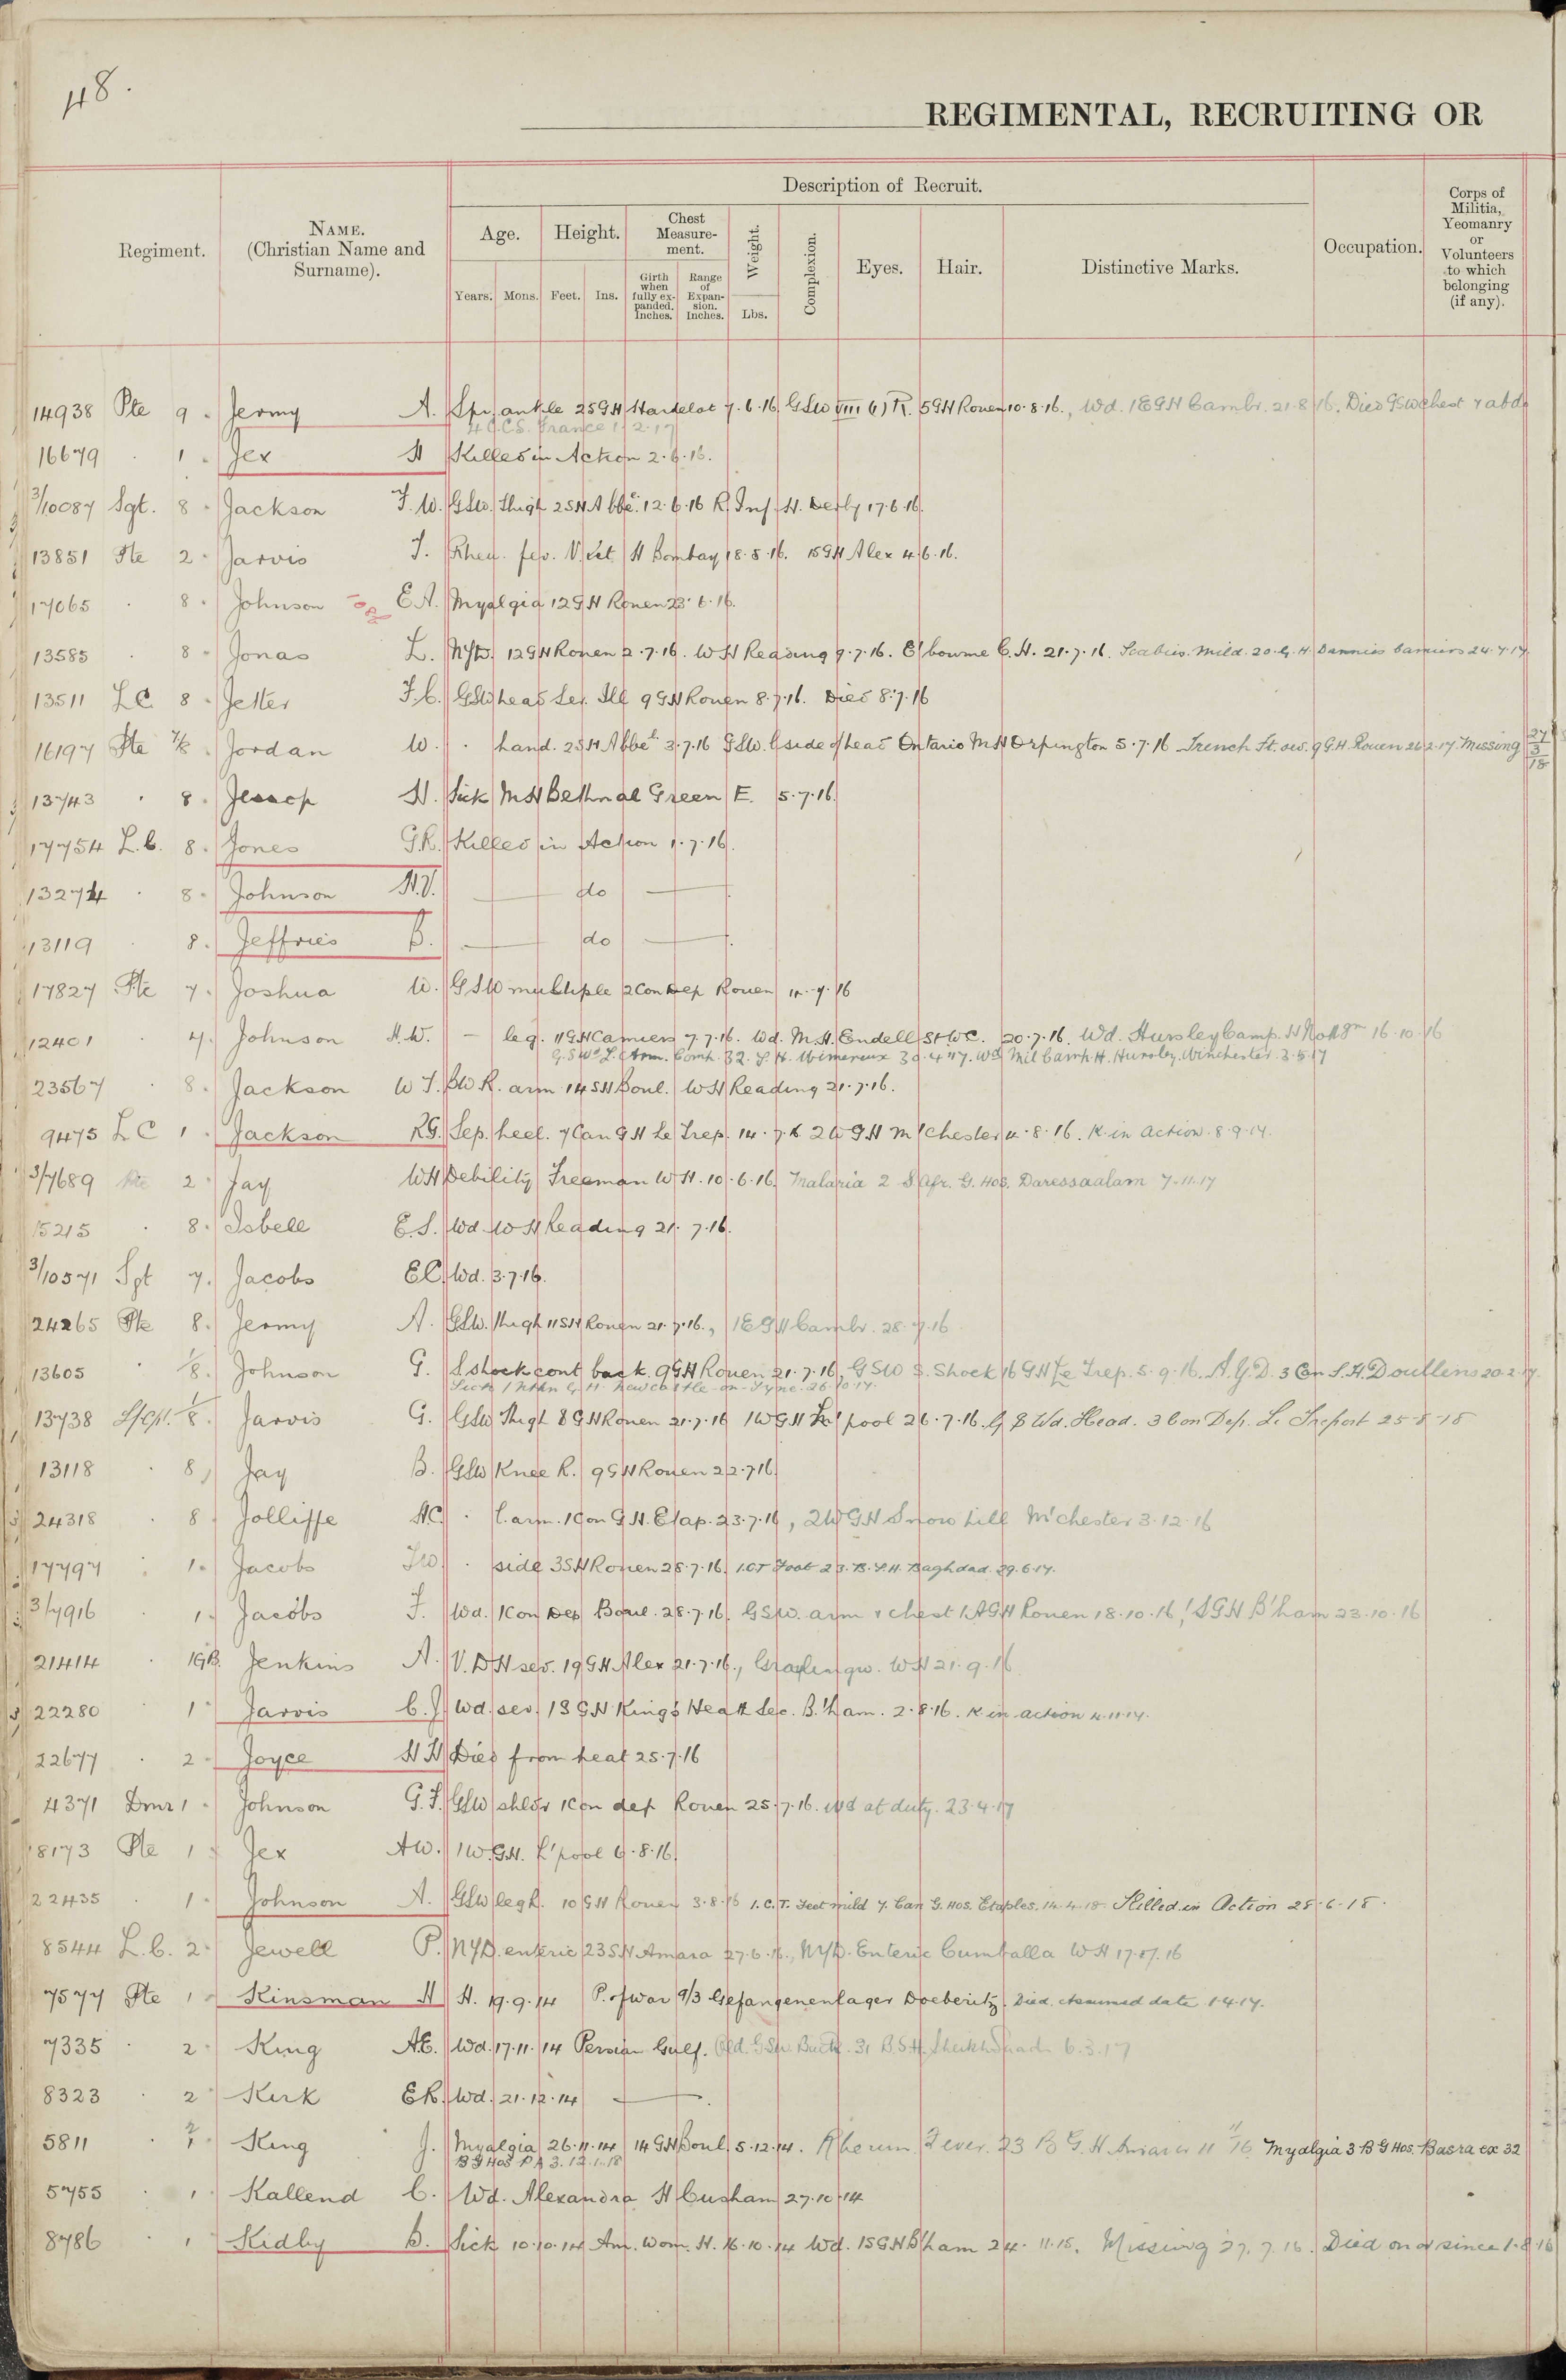 48.
REGIMENTAL, RECRUITING OR
Regiment.
NAME.
(Christian Name and
Surname).
Description of Recruit.
Age.
Height.
Chest
Measure-
ment.
Weight.
Complexion.
Eyes.
Hair.
Distinctive Marks.
Occupation.
Corps of
Militia,
Yeomanry
or
Volunteers
to which
belonging
(if any).
Years.
Mons.
Feet.
Ins.
Girth
when
fully ex-
panded.
Inches.
Range
of
Expan-
sion.
Inches.
Lbs.
14938 Pte 9. Jermy A. Spr. ankle 25GH Hardelot 7.6.16 GSW VIII (1) R. 5GH Rouen 10.8.16., Wd. 1EGH Cambr. 21.8.16. Died GSW chest & abd.
4 C.C.S. France 1.2.17
16679 . 1. Jex H Killed in Action 2.6.16.
3/10087 Sgt. 8. Jackson F.W. GSW. Thigh 2SH Abbe. 12.6.16 R. Inf. H. Derby 17.6.16.
13851 Pte 2. Jarvis T. Rheu. fev. V. H Bombay 18.5.16. 15GH Alex 4.6.16.
17065 . 8. Johnson E.A. Myalgia 12GH Rouen 23.6.16.
13585 . 8. Jonas L. NYD. 12GH Rouen 2.7.16. WH Reading 9.7.16. E'bourne C.H. 21.7.16. Scabies. mild. 20.G.H. Dannies Camiers 24.7.17.
13511 LC 8. Jetter F.C. GSW head Sev. Ill 9GH Rouen 8.7.16. Died 8.7.16
16197 Pte 7/8. Jordan W. . hand. 2SH Abbe 3.7.16 GSW. l side of head Ontario MH Orpington 5.7.16 Trench Ft. sev. 9 G.H. Rouen 26.2.17. Missing 27/3/18
13743 . 8. Jessop H. Sick MH Bethnal Green E. 5.7.16.
17754 L.C. 8. Jones G.R. Killed in Action 1.7.16.
13274 . 8. Johnson H.V. — do —
13119 . 8. Jeffries B. — do —
17827 Pte 7. Joshua W. GSW multiple 2 Con Dep Rouen 12.7.16
12401 . 7. Johnson H.W. — leg. 11GH Camiers 7.7.16. Wd. M.H. Endell St WC. 20.7.16. Wd. Hursley Camp. H 16.10.16
G.S.Wd L. Arm. Comp. 32. S.H. Wimereux 30.4.17. Wd Mil Camp H. Hursley. Winchester. 3.5.17
23567 . 8. Jackson W.T. BW R. arm 14SH Boul. WH Reading 21.7.16.
9475 LC 1. Jackson R.G. Sep. heel. 7 Can GH Le Trep. 14.7.16 2WGH M'chester 4.8.16. K. in action. 8.9.17.
3/7689 Pte 2. Jay WH Debility Freeman WH. 10.6.16. Malaria 2 S Afr. G. Hos. Daressaalam 7.11.17
15215 . 8. Isbell E.S. Wd WH Reading 21.7.16.
3/10571 Sgt 7. Jacobs EC. Wd. 3.7.16.
24265 Pte 8. Jermy A. GSW. thigh 11SH Rouen 21.7.16., 1EGH Cambr. 28.7.16
13605 . 1/8. Johnson G. S.shock cont back. 9GH Rouen 21.7.16, GSW S. Shock 16 GH Le Trep. 5.9.16. N.Y.D. 3 Can S.H. Doullens 20.2.17.
Sick 1 Nthn G.H. Newcastle-on-Tyne. 26.10.17.
13738 L/Cpl. 1/8. Jarvis G. GSW Thigh 8GH Rouen 21.7.16 1WGH L'pool 26.7.16. G S Wd. Head. 3 Con Dep. Le Treport 25.8.18
13118 . 8, Jay B. GSW Knee R. 9GH Rouen 22.7.16.
24318 . 8 Jolliffe H.C. . l. arm. 1 Con GH. Etap. 23.7.16, 2WGH Snow hill M'chester 3.12.16
17797 . 1. Jacobs . side 3SH Rouen 28.7.16. I.C.T. Foot 23.B.S.H. Baghdad. 29.6.17.
3/7916 . 1. Jacobs F. Wd. 1 Con Dep Boul. 28.7.16. GSW. arm & chest 1AGH Rouen 18.10.16, 1SGH B'ham 23.10.16
21414 . 1GB. Jenkins A. V.DH sev. 19GH Alex 21.7.16., Graylingw. WH 21.9.16
22280 1. Jarvis C.J. Wd. sev. 1SGH King's Heath Sec. B'ham. 2.8.16. K in action 4.11.17.
22677 . 2. Joyce HH Died from heat 25.7.16
4371 Dmr 1. Johnson G.F. GSW shldr 1 Con dep Rouen 25.7.16. Wd at duty. 23.4.17
18173 Pte 1 Jex AW. 1W.GH. L'pool 6.8.16.
22435 . 1. Johnson A. GSW leg R. 10GH Rouen 3.8.16 I.C.T. Feet mild 7. Can G. Hos. Etaples. 14.4.18. Killed in Action 28.6.18.
8544 L.C. 2. Jewell P. NYD. enteric 23SH Amara 27.6.16., NYD. Enteric Cumballa WH 17.7.16
7577 Pte 1 Kinsman H H. 19.9.14 P. of war 9/3 Gefangenenlager Doeberitz. Died. Assumed date 1.4.17.
7335 . 2. King A.E. Wd. 17.11.14 Persian Gulf. GSW. Butt. 31 B.S.H. Sheikh Saad 6.3.17
8323 . 2. Kirk ER. Wd. 21.12.14 —
5811 . 2/1. King J. Myalgia 26.11.14 14GH Boul. 5.12.14. Rheum. Fever. 23 B G.H. Amara 11 11/16 Myalgia 3 B G Hos. Basra ex 32
B G Hos P A 3. 12.1.18
5755 . 1 Kallend C. Wd. Alexandra H Cosham 27.10.14
8786 1 Kidby B. Sick 10.10.14 Am. Wom. H. 16.10.14 Wd. 1SGH B'ham 24.11.15. Missing 27.7.16. Died on or since 1.8.16